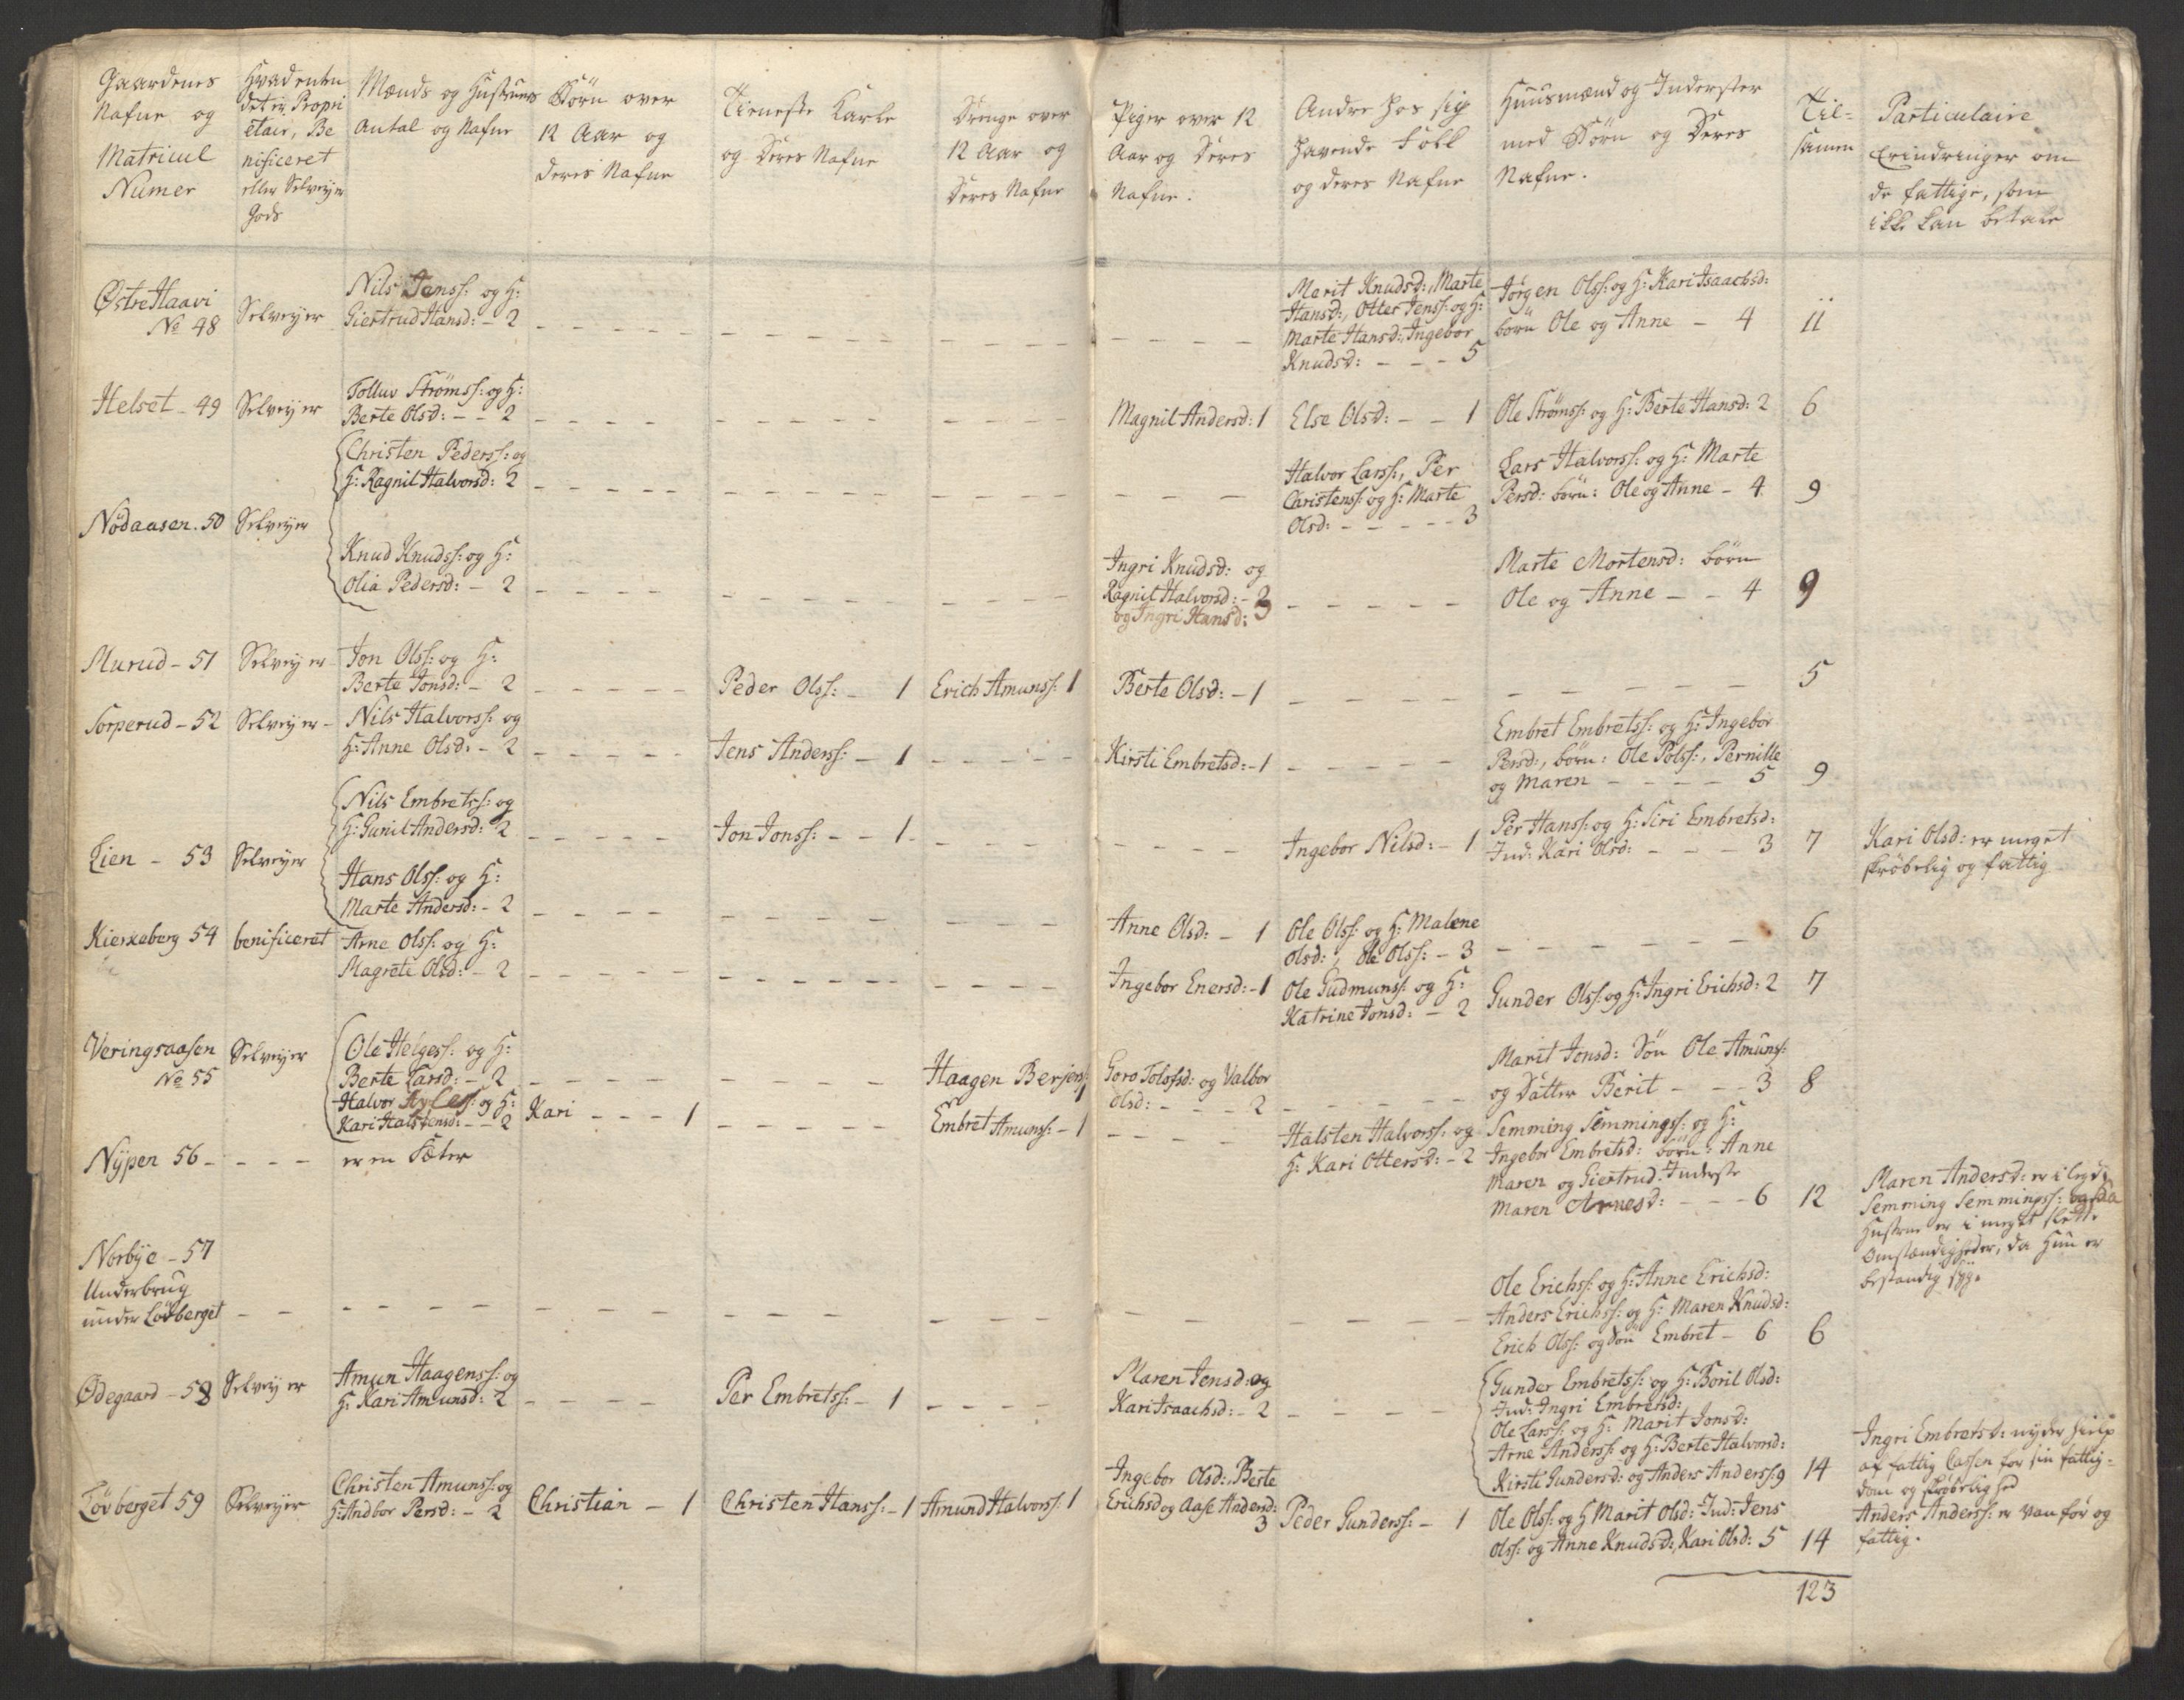 Gaardenes
Nafne og
Matricul
Numer
Hvad enten
det er Propri
etair, Be
nificeret
eller Selveyer
Gods
Mænds og Hustruers
Antal og Nafne
Börn over
12 Aar og
deris Nafne
Tieneste Karle
og Deres Nafne
Drenge over
12 Aar og
Deres Nafne
Piger over 12
Aar og Deres
Nafne.
Andre hos sig
havende Folk
og deres Nafne
Huusmænd og Inderster
med Börn og Deres
Nafne.
Til=
samen
Particulaire
Erindringer om
de fattige, som
ikke kan betale
Østre Haavi
No 48
Selveyer
Nils Jenss: og H:
Giertrud Hansd: - 2
Merit Knudsd:, Marte
Hansd:, Otter Jenss: og H:
Marte Hansd:, Ingebor
Knudsd: - - - 5
Jørgen Olss: og H: Kari Isaachsd:
börn Ole og Anne - 4
11
Helset - 49
Selveyer
Tolluv Strømss: og H:
Berte Olsd: - - 2
Magnil Andersd: 1
Else Olsd: - - 1
Ole Strømss: og H: Berte Hansd: 2
6
Nödaasen. 50
Selveyer
Christen Pederss: og
H: Ragnil Halvorsd: 2
Halvor Larss:, Per
Christenss: og H: Marte
Olsd: - - - - - 3
Lars Halvorss: og H: Marte
Persd: börn: Ole og Anne - 4
9
Knud Knudss: og H:
Olia Pedersd: - 2
Ingri Knudsd: og
Ragnil Halvorsd: -
og Ingri Hansd: 3
Marte Mortensd: börn
Ole og Anne - - 4
9
Murud - 51
Selveyer
Jon Olss: og H:
Berte Jonsd: - 2
Peder Olss: - 1
Erich Amunss: 1
Berte Olsd: - 1
5
Torperud - 52
Selveyer -
Nils Halvorss: og
H: Anne Olsd: - 2
Jens Anderss: - 1
Kirsti Embretsd: - 1
Embret Embretss: og H: Ingebor
Persd:, börn: Ole Polss:, Pernille
og Maren - - - - 5
9
Lien - 53
Selveyer
Nils Embretss: og
H: Gunil Andersd: 2
Jon Jonss: - - 1
Ingebor Nilsd: - 1
Per Hanss: og H: Siri Embretsd:
Ind: Kari Olsd: - - - 3
7
Kari Olsd: er meget
skröbelig og fattig
Hans Olss: og H:
Marte Andersd: - 2
Anne Olsd: - 1
Ole Olss: og H: Malene
Olsd:, Ole Olss: - 3
6
Kierxeberg 54
benificeret
Arne Olss: og H:
Magrete Olsd: - 2
Ingebor Enersd: - 1
Ole Gudmunss: og H:
Katrine Jonsd: - 2
Gunder Olss: og H: Ingri Erichsd: 2
7
Veringsaasen
No 55
Selveyer
Ole Helgess: og H:
Berte Larsd: - 2
Haagen Berjers: 1
Goro Tolofsd: og Valbor
Olsd: - - - 2
Marit Jonsd: Sön Ole Amuns:
og Datter Berit - - 3
8
Halvor og H:
Kari Halstensd: - - 2
Kari - - - 1
Embret Amunss: - 1
Halsten Halvorss: og
H: Kari Ottersd: - 2
Semming Semmingss: og H:
Ingebor Embretsd: börn: Anne
Maren og Giertrud. Inderste
Maren Arnesd: - - - 6
12
Maren Andersd: er i Legd.
Semming Semmingss:
Hustrue er i meget slette
Omstændigheder, da Hun er
bestandig syge
Nÿpen 56 -
er en Sæter
Norbÿe - 57
Underbrug
under Lövberget
Ole Erichss: og H: Anne Erichsd:
Anders Erichss: og H: Maren Knudsd:
Erich Olss: og Sön Embret - 6
6
Ödegaard - 58
Selveyer
Amun Haagenss: og
H: Kari Amunsd: 2
Per Embretss: - 1
Maren Jensd: og
Kari Isaachsd: - 2
Gunder Embretss: og H: Boril Olsd:
Ind: Ingri Embretsd:
Ole Larss: og H: Marit Jonsd:
Arne Anderss: og H: Berte Halvorsd:
Kirsti Gundersd: og Anders Anderss: 9
14
Ingri Embretsd: nyder hielp
af fattig Cassen for sin fattig=
dom og skröbelighed
Anders Anderss: er van för og
fattig.
Lövberget 59
Selveyer
Christen Amunss: og
H: Andbor Persd: - 2
Christian - 1
Christen Hanss: - 1
Amund Halvorss: 1
Ingebor Olsd:, Berte
Erichsd og Aase Andersd:
3
Peder Gunderss: - 1
Ole Olss: og H Marit Olsd: Ind: Jens
Olss: og Anne Knudsd:, Kari Olsd: 5
14
123